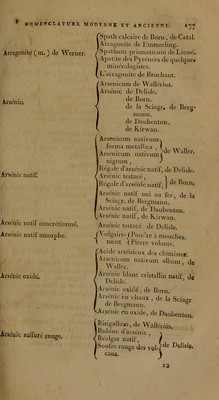 NOMENCLATURE MODERNE ET ANCIENNE. 177
Arragonite (m.) de Werner.
Spath calcaire de Born, de Catal.
Arragonite de Emmerling.
Spathum prismaticum de Linné.
Apatite des Pyrénées de quelques
minéralogistes.
L'arragonite de Brochant.
Arsénic.
Arsenicum de Wallérius.
Arsénic de Delisle.
de Born.
de la Sciagr. de Berg-
mann.
de Daubenton.
de Kirwan.
Arsénic natif.
Arsenicum nativum
forma metallica ,
Arsenicum nativum
nigrum ,
de Waller.
Régule d'arsénic natif, de Delisle.
Arsénic testacé ,
Régule d'arsénic natif,
de Born.
Arsénic natif uni au fer, de la
Sciagr. de Bergmann.
Arsénic natif, de Daubenton.
Arsénic natif, de Kirwan.
Arsénic natif concrétionné.
Arsénic testacé, de Delisle.
Arsénic natif amorphe.
Vulgaire-
ment
Poudre à mouches.
Pierre volante.
Arsénic oxidé.
Acide arsénieux des chimistes.
Arsenicum nativum album, de
Waller.
Arsénic blanc cristallin natif, de
Delisle.
Arsénic oxidé, de Born.
Arsénic en chaux, de la Sciagr
de Bergmann.
Arsénic en oxide, de Daubenton.
Arsénic sulfuré rouge.
Risigallum, de Wallérius.
Rubine d'arsénic ,
Réalgar natif,
Soufre rouge des vol-
cans.
de Delisle.
12